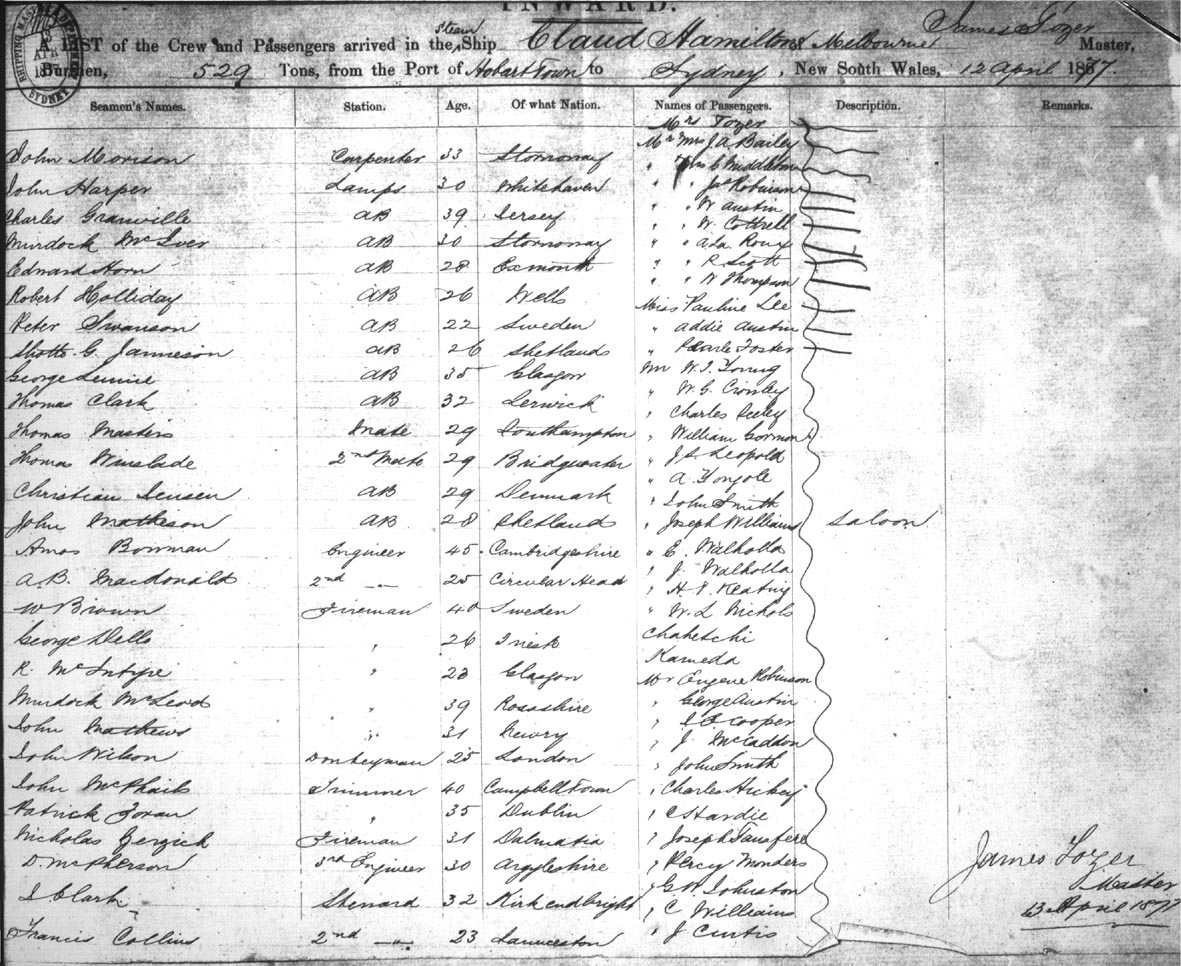 INWARD.
A LIST of the Crew and Passengers arrived in the Steam Ship Claud Hamilton of Melbourne James Tozer Master,
Burthen, 529 Tons, from the Port of Hobart Town to Sydney, New South Wales, 12 April 1877.
SHIPPING MASTER'S DEPARTMENT SYDNEY
Seamen's Names. Station. Age. Of what Nation. Names of Passengers. Description. Remarks.
Mrs Tozer
John Morison Carpenter 33 Stornoway Mr Mrs J A Bailey
" Mrs C Middleton
John Harper Lamps 30 Whitehaven " " Jas Robinson
Charles Granville AB 39 Jersey " " W Austin
" " W. Cottrell
Murdock McIver AB 30 Stornoway " " A La Roux
Edward Horn AB 28 Exmouth " " R Scott
" " W Thompson
Robert Holliday AB 26 Wells Miss Pauline Lee
Peter Swanson AB 22 Sweden " Addie Austin
Shotto G. Jamieson AB 26 Shetlands " Pearle Foster
George AB 35 Glasgow Mr W. I. Young
" W. G. Crowley
Thomas Clark AB 32 Lerwick " Charles Seeley
Thomas Masters Mate 29 Southampton " William Gorman
Thomas Winslade 2nd Mate 29 Bridgwater " J. S. Leopold
" A
Christian Jensen AB 29 Denmark " John Smith
John Matheson AB 28 Shetlands " Joseph Williams Saloon
Amos Bowman Engineer 45 Cambridgeshire " E. Walhalla
A. B. Macdonald 2nd " 25 Circular Head " J. Walhalla
" H. V. Keating
W Brown Fireman 40 Sweden " W. L Nichols
George Dells " 26 Chaketchi
Kameda
R. McIntyre " 23 Glasgow Mr Eugene Robinson
Murdock McLeod " 39 Rossshire " George Austin
" Cooper
John Mathews " 31 Newry " J. McCaddon
John Wilson Donkeyman 25 London " John Smith
John McPhail Trimmer 40 Campbell Town " Charles Hickey
Patrick Foran " 35 Dublin " C Hardie
Nicholas Gerzich Fireman 31 Dalmatia " Joseph
D McPherson 3rd Engineer 30 Argyleshire " Percy Monders
" G H Johnston
J Clark Steward 32 Kirkcudbright " C Williams
Francis Collins 2nd " 23 Launceston " J Curtis
James Tozer
Master
13 April 1877